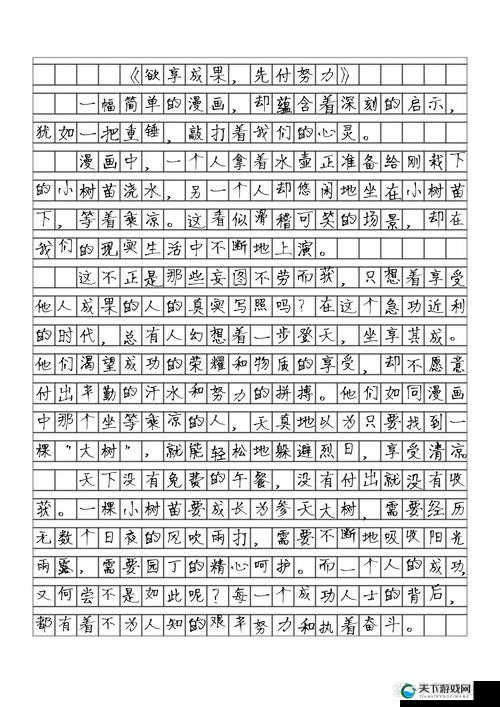 《欲享成果，先付努力》
一幅简单的漫画，却蕴含着深刻的启示，
犹如一把重锤，敲打着我们的心灵。
漫画中，一个人拿着水壶正准备给刚栽下
的小树苗浇水，另一个人却悠闲地坐在小树苗
下，等着乘凉。这看似滑稽可笑的场景，却在
我们的现实生活中不断地上演。
这不正是那些妄图不劳而获，只想着享受
他人成果的人的真实写照吗？在这个急功近利
的时代，总有人幻想着一步登天，坐享其成。
他们渴望成功的荣耀和物质的享受，却不愿意
付出辛勤的汗水和努力的拼搏。他们如同漫画
中那个坐等乘凉的人，天真地以为只要找到一
棵“大树”，就能轻松地躲避烈日，享受清凉
天下没有免费的午餐，没有付出就没有收
获。一棵小树苗要成长为参天大树，需要经历
无数个日夜的风吹雨打，需要不断地吸收阳光
雨露，需要园丁的精心呵护。而一个人的成功，
又何尝不是如此呢？每一个成功人士的背后，
都有着不为人知的艰辛努力和执着奋斗。
天下游戏网